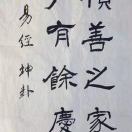 積善之家
必有餘慶
易經坤卦